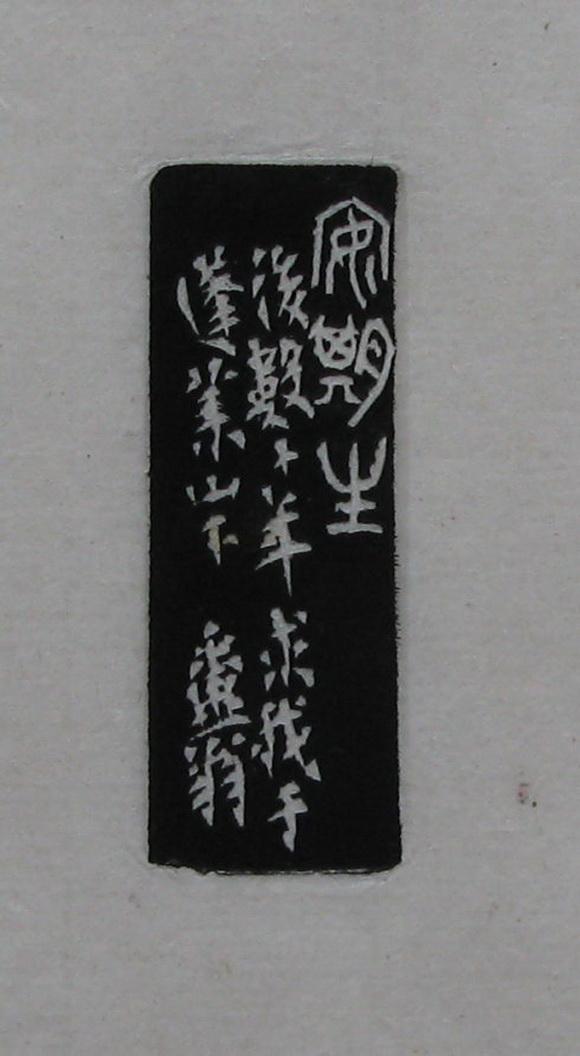 安期生
後數十年求我于
蓬萊山下 翁